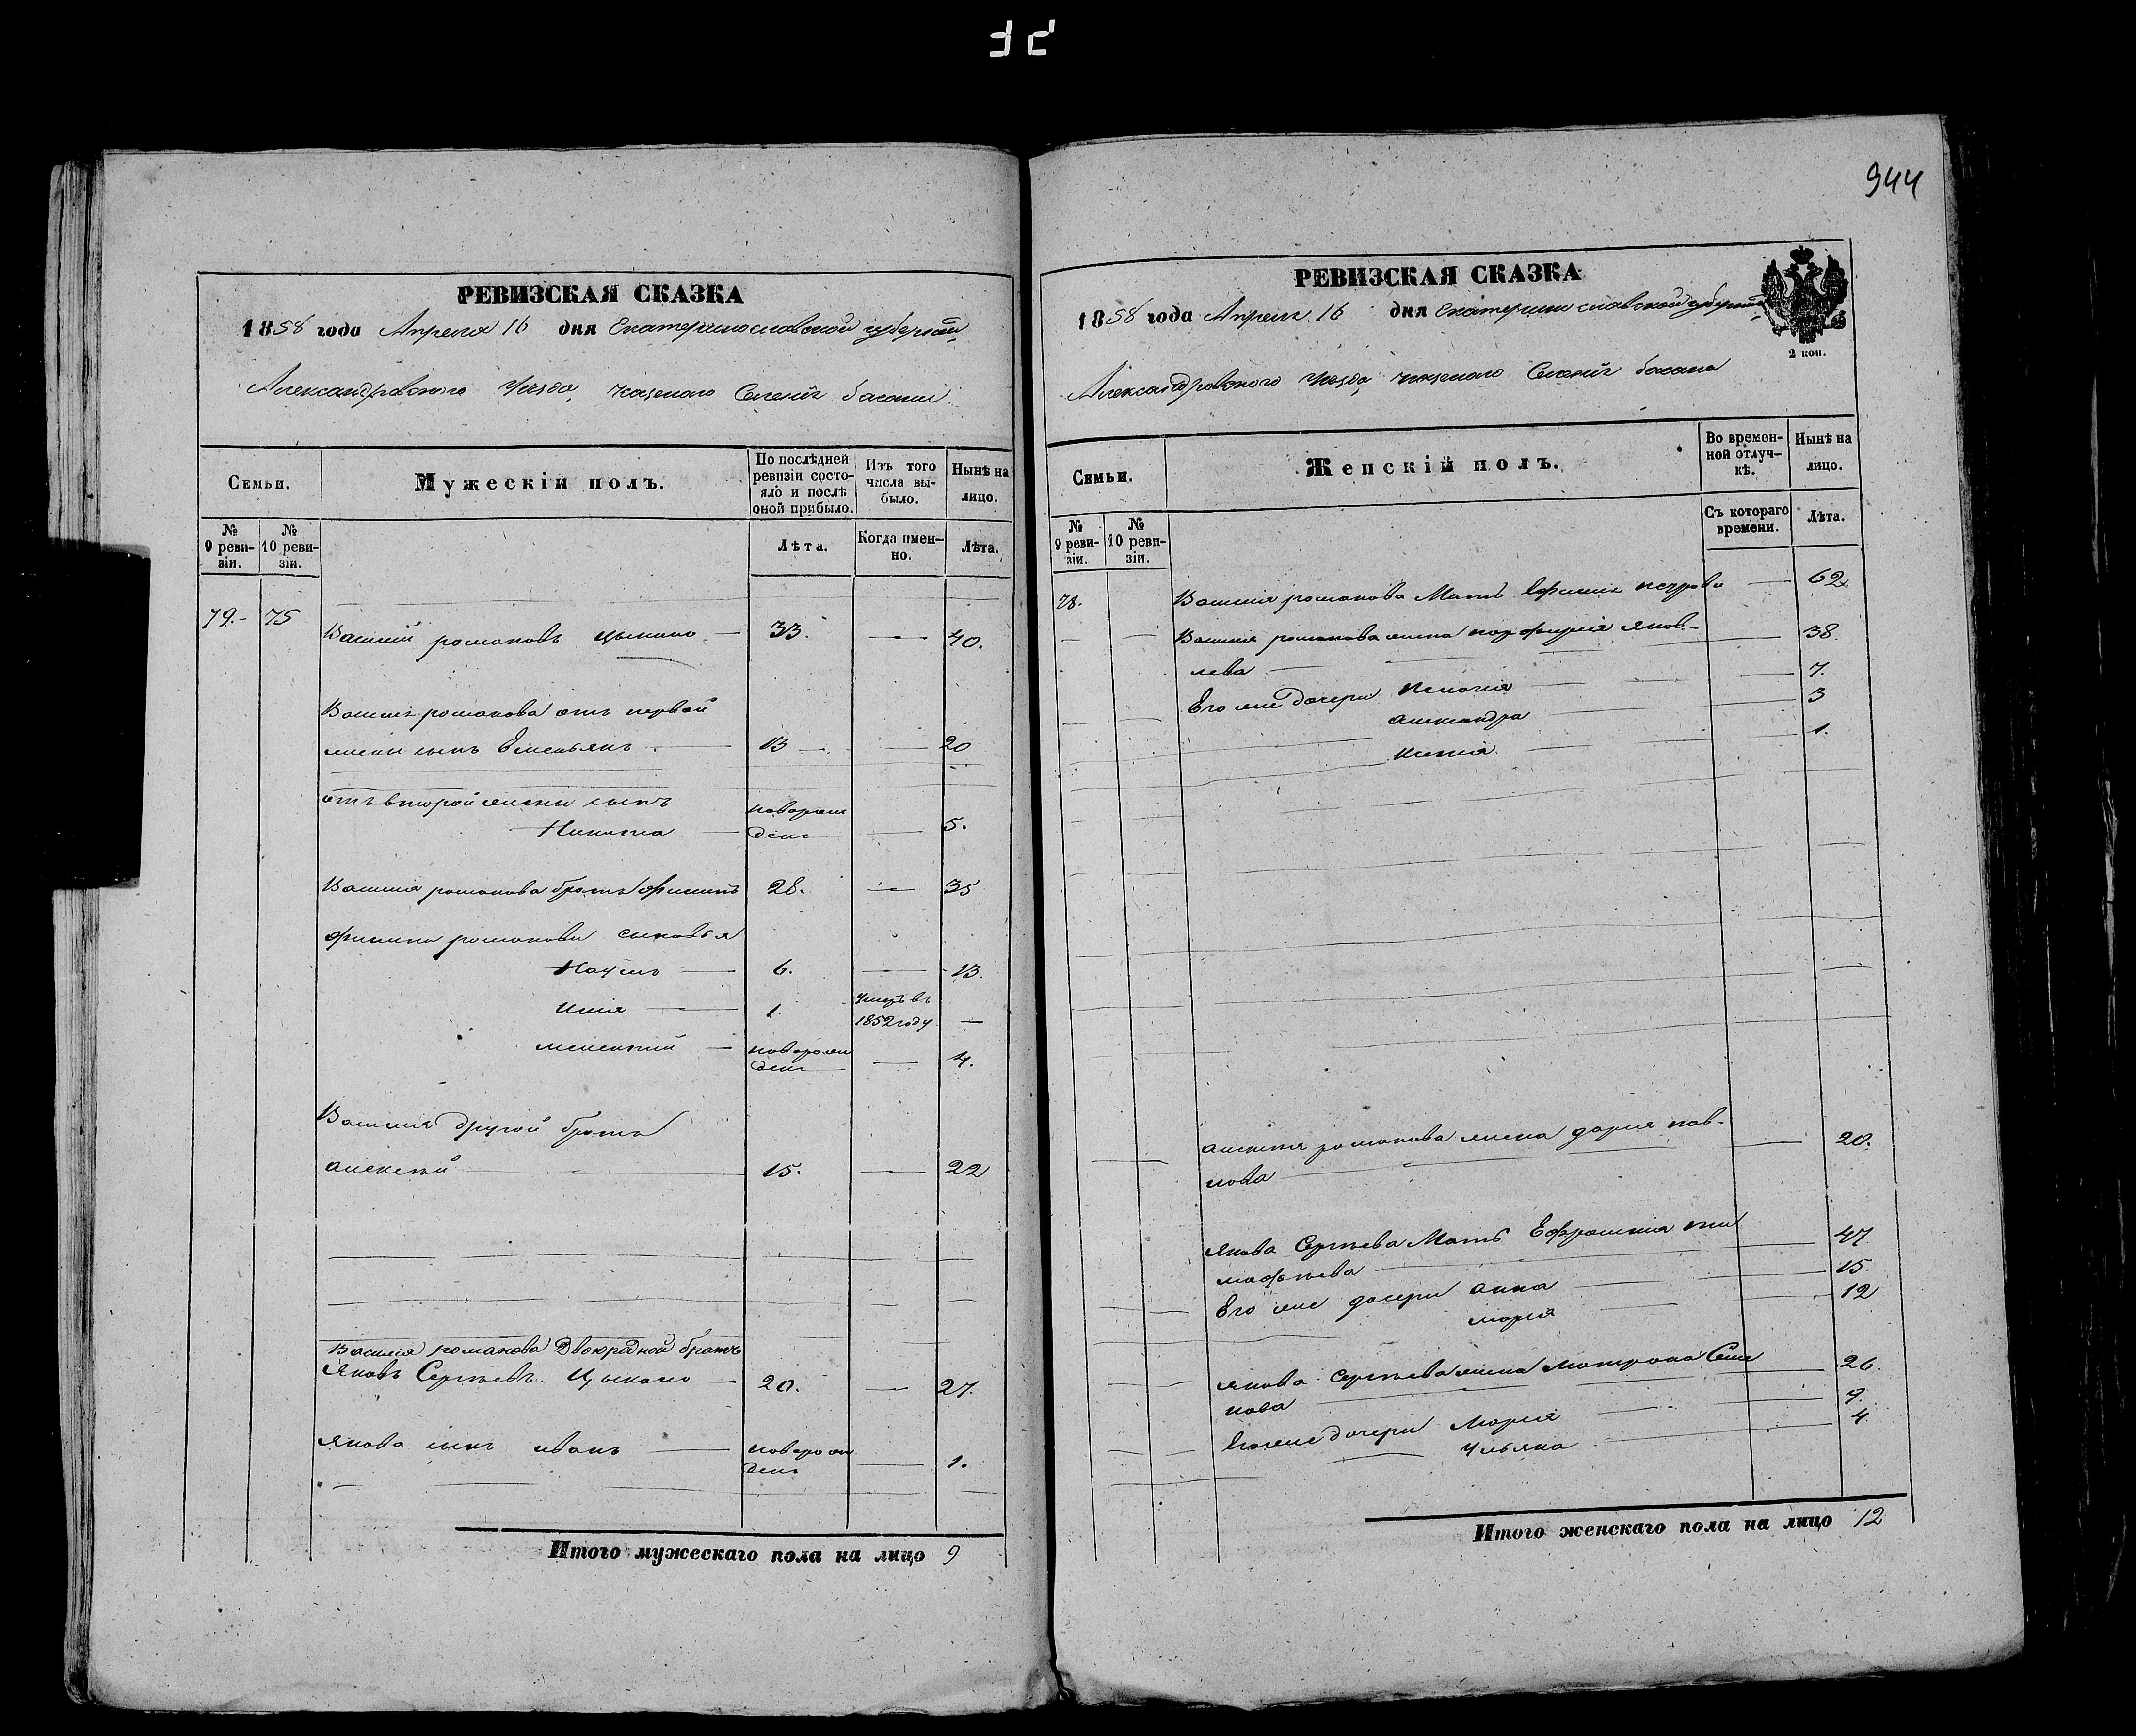 944
РЕВИЗСКАЯ СКАЗКА
1858 года Апреля 16 дня Екатеринославской губернии
Александровского Уезда, казеннаго Селенія басани
Семьи.
Мужескій полъ.
По послѣдней ревизіи состояло и послѣ оной прибыло.
Изъ того числа выбыло.
Нынѣ на лицо.
№ 9 ревизіи.
№ 10 ревизіи.
Лѣта.
Когда имен-но.
Лѣта.
79. 75
Василій романовъ Цыкало 33. 40.
Василія романова отъ первой
жены сынъ Емельянъ 13 20
отъ второй жены сынъ
Никита новорожденъ 5.
Василія романова братъ Филипъ 28. 35
Филипа романова сыновья
Наумъ 6. 13.
Илія 1. умеръ въ 1852 году
новорожденъ 4.
Василія другой братъ
алексѣй 15. 22
Василія романова Двоюродной братъ
Яковъ Сергѣевъ Цыкало 20. 27.
Якова сынъ иванъ новорожденъ 1.
Итого мужескаго пола на лицо 9
РЕВИЗСКАЯ СКАЗКА
1858 года Апреля 16 дня Екатеринославской губерніи
2 коп.
Александровского Уезда, казеннаго Селенія басани
Семьи.
Женскій полъ.
Во временной отлучкѣ.
Нынѣ на лицо.
№ 9 ревизіи.
№ 10 ревизіи.
Съ котораго времени.
Лѣта.
Василія романова Мать Ефимія петрова 62
Василія романова жена порфирія яков-
лева 38.
Его же дочери 7.
александра 3
1.
алексѣя романова жена дарія пав-
лова 20.
Якова Сергѣева Мать Ефросинія ти
мофѣева 47
Его же дочери анна 15.
марія 12
Якова Сергѣева жена Матрона Семе
нова 26.
Его же дочери Марія 7.
Ульяна 4.
Итого женскаго пола на лицо 12